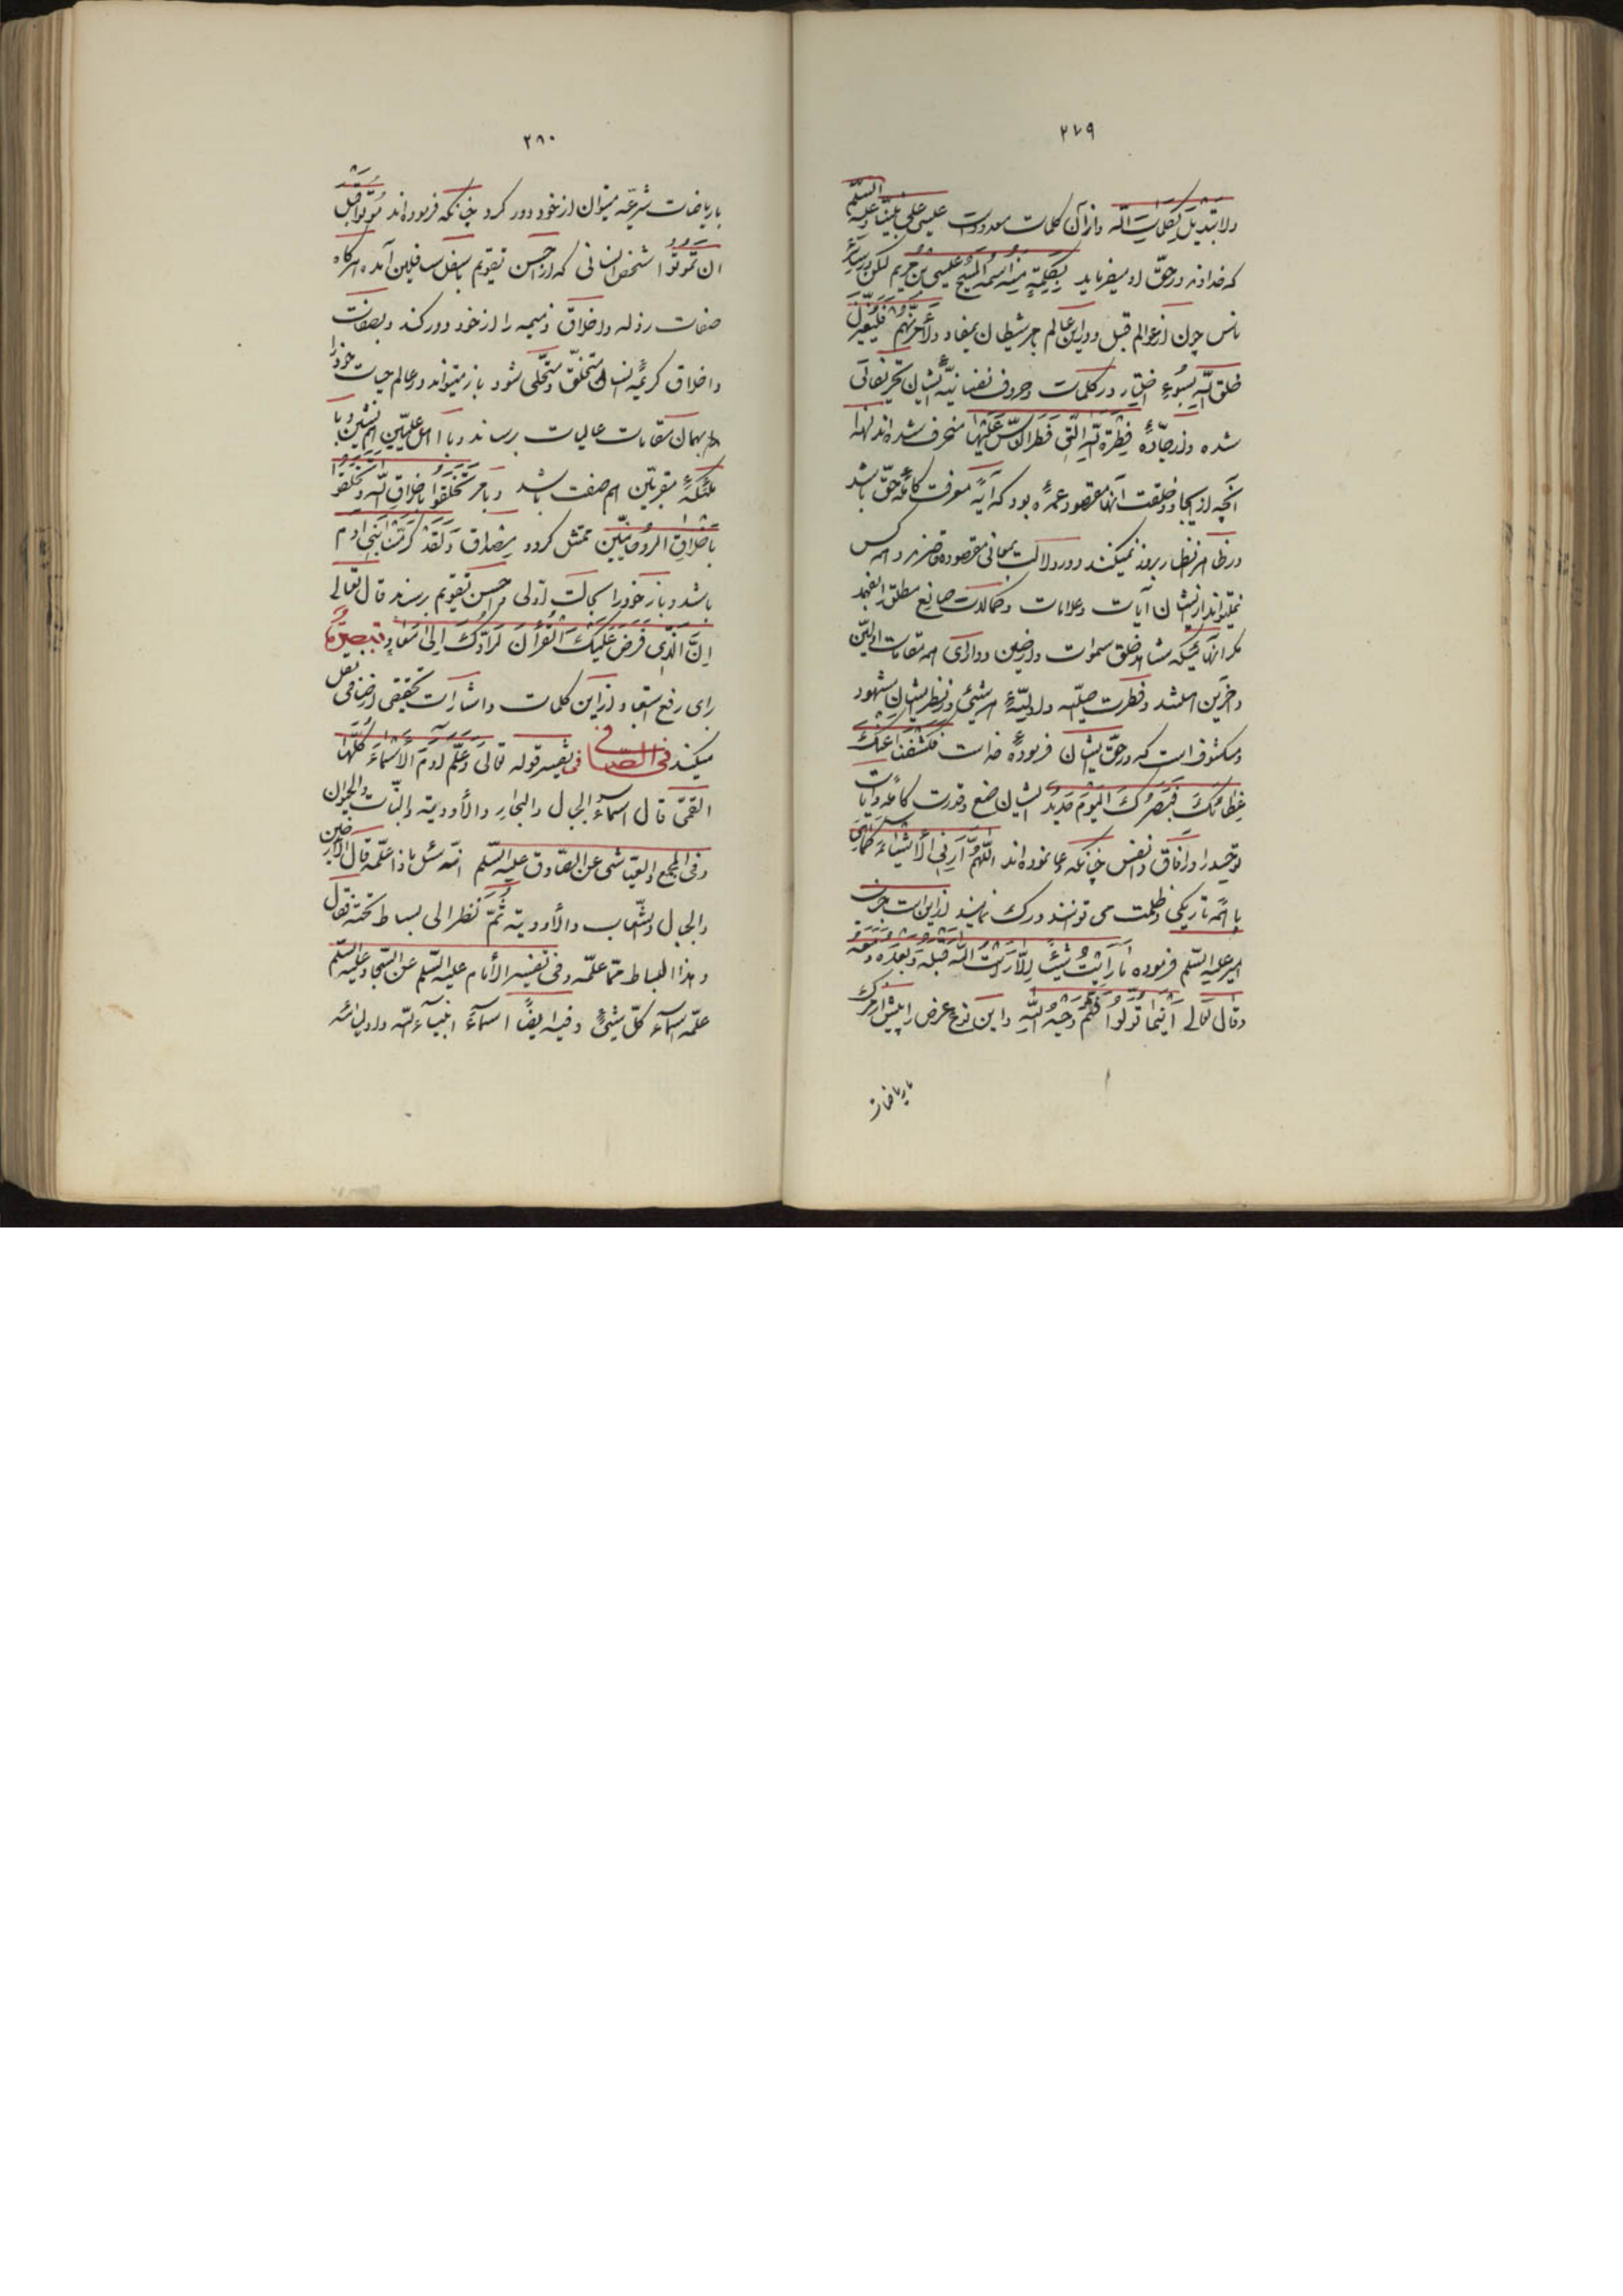 ٢٧٩
ولا تبدیل لکلمات الله واز آن کلمات معدود است عیسی علی نبینا وعلیه السلم
که خداوند در حق او میفرماید بکلمة منه اسمه المسیح عیسی بن مریم لکن در سایر
ناس چون از عوالم قبل و در این عالم بامر شیطان بمفاد ولآمرنهم فلیغیرن
خلق الله بسوء اختیار در کلمات وحروف نفسانیهٔ ایشان تحریفاتی
شده و از جادهٔ فطرة الله التی فطر الناس علیها منحرف شده‌اند لهذا
آنچه از ایجاد وخلقت آنها مقصود عمده بود که آیهٔ معرفت کاملهٔ حق باشد
در ظاهر نظار بروز نمیکند و در دلالت بمعانی مقصوده قاصرند و همه کس
نمیتواند از ایشان آیات و علامات و کمالات صانع مطلق را بفهمد
مگر آنهائیکه مشاهد خلق سموات وارضین و دارای همه مقامات اولین
و آخرین هستند و فطرت اصلیه و اولیهٔ هر شیئی در نظر ایشان مشهود
و مکشوف است که در حق ایشان فرمودهٔ خداست فکشفنا عنک
غطائک فبصرک الیوم حدید ایشان صنع وقدرت کامله وآیات
توحید را در آفاق وانفس چنانکه دعا نموده‌اند اللهم ارنی الأشیاء کماهی
با همه تاریکی و ظلمت می توانند درک نمایند از این است حضرت
امیر علیه السلم فرموده ما رایت شیئا الا ورایت الله قبله وبعده ومعه
وقال تعالی اینما تولوا فثم وجه الله واین نوع عرض را بیش از مرک
باریاضات
٢٨٠
باریاضات شرعیه میتوان از خود دور کرد چنانکه فرموده‌اند موتوا قبل
ان تموتوا شخص انسانی که از احسن تقویم باسفل سافلین آمده هرگاه
صفات رذله واخلاق ذمیمه را از خود دور کند وبصفات
واخلاق کریمهٔ انسان متخلق ومتحلی شود باز میتواند در عالم حیات خود را
بهمان مقامات عالیات برساند وبا اهل علیین هم نشین وبا
ملئکهٔ مقربین هم صفت باشد وبامر تخلقوا باخلاق الله وتخلقوا
باخلاق الروحانیین متمثل گردد ومصداق ولقد کرمنا بنی آدم
باشد وباز خود را بحالت اولی و احسن تقویم برساند قال تعالی
ان الذی فرض علیک القرآن لرادک الی معاد تبصرة
برای رفع استبعاد از این کلمات واشارات تحقیقی از صافی نقل
میکند فی الصافی فی تفسیر قوله تعالی وعلم آدم الأسماء کلها
القمی قال اسماء الجبال والبحار والأودیة والنبات والحیوان
وفی المجمع والعیاشی عن الصادق علیه السلم انه سئل ماذا علمه قال الأرضین
والجبال والشعاب والأودیة ثم نظر الی بساط تحته فقال
وهذا البساط مما علمه وفی تفسیر الأمام علیه السلم عن السجاد علیه السلم
علمه اسماء کل شیئ وفیه ایضا اسماء انبیاء الله واولیائه